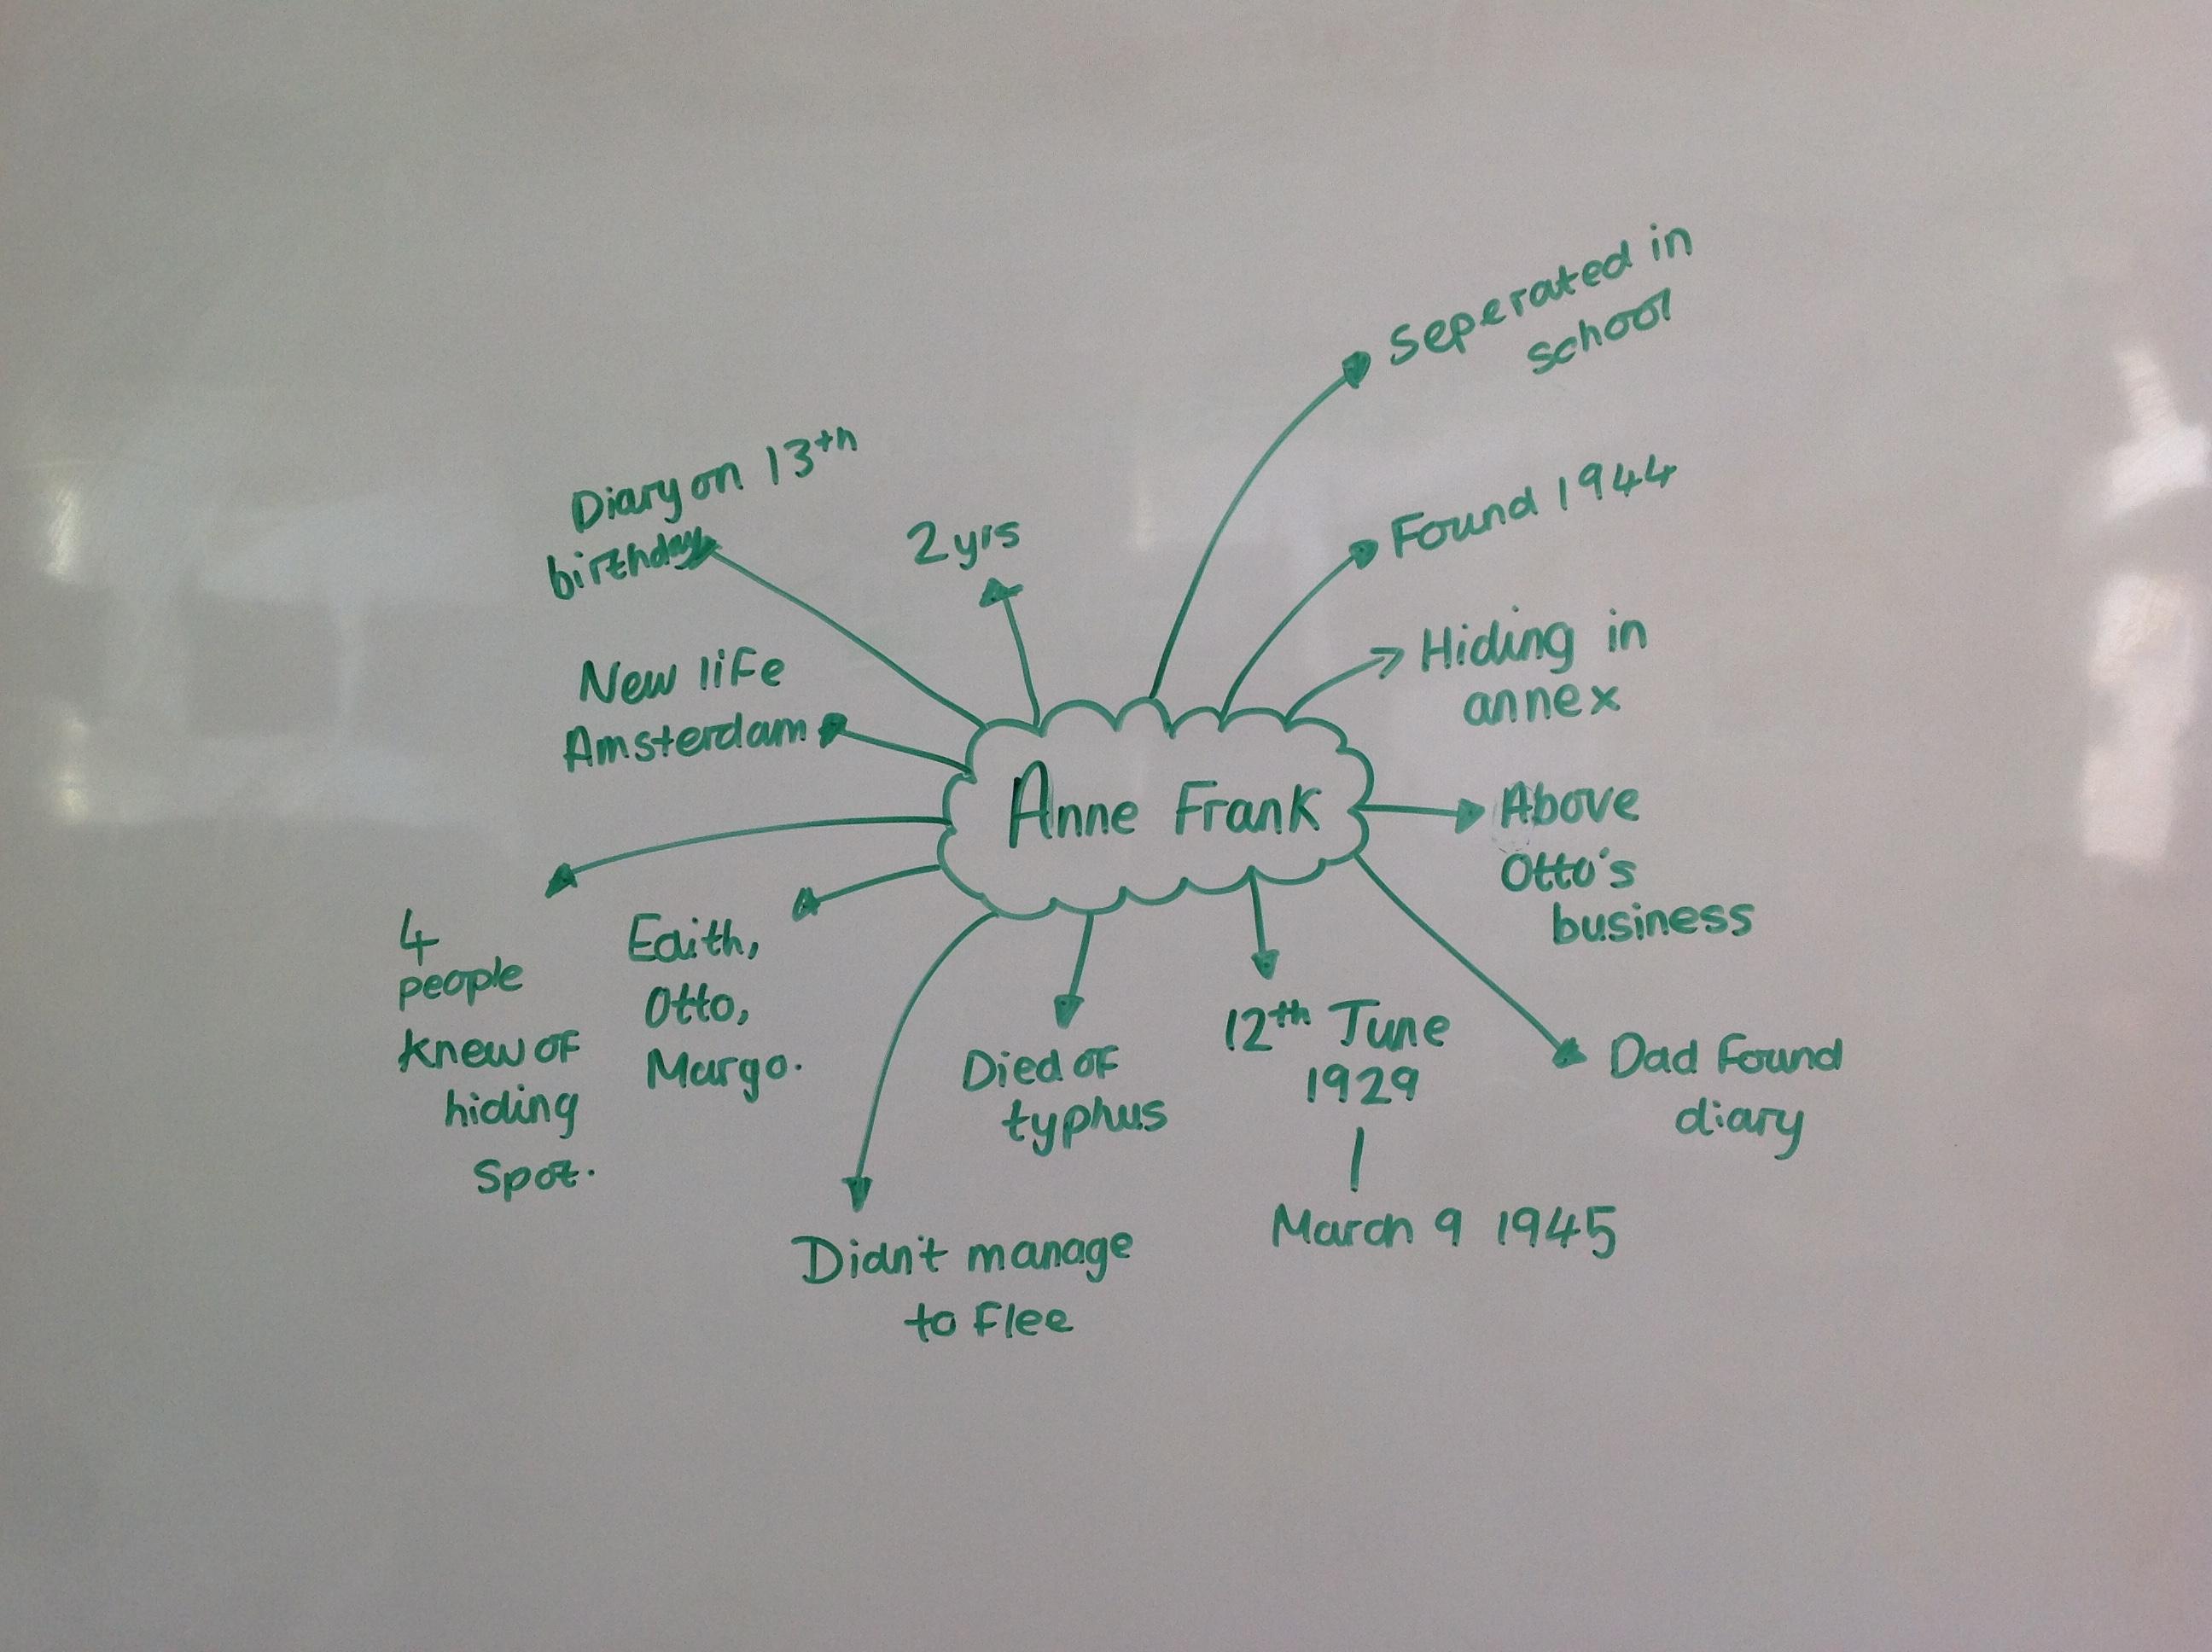 Anne Frank
Seperated in
school
Found 1944
Hiding in
annex
Above
Otto's
business
Dad found
diary
12th June
1929
|
March 9 1945
Died of
typhus
Didn't manage
to flee
Edith,
Otto,
Margo.
4
people
knew of
hiding
spot.
New life
Amsterdam
Diary on 13th
birthday
2 yrs